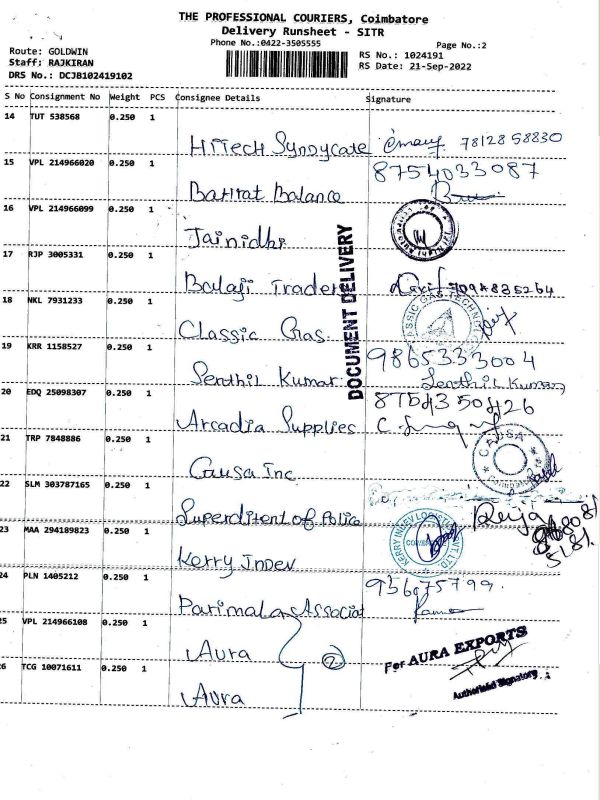 THE PROFESSIONAL COURIERS, Coimbatore
Delivery Runsheet - SITR
Phone No.:0422-3505555
Page No.:2
Route: GOLDWIN
Staff: RAJKIRAN
DRS No.: DCJB102419102
RS No.: 1024191
RS Date: 21-Sep-2022
S No Consignment No Weight PCS Consignee Details Signature
14 TUT 538568 0.250 1
HiTech Syndycate 78128 58830
15 VPL 214966020 0.250 1 8754033087
Barirat Balance
16 VPL 214966099 0.250 1
Jainidhi
17 RJP 3005331 0.250 1
Balaji Traders
DOCUMENT DELIVERY
18 NKL 7931233 0.250 1
Classic Gas
CLASSIC GAS
19 KRR 1158527 0.250 1 9865333004
Senthil Kumar Senthil Kumar
20 EDQ 25098307 0.250 1
Arcadia Supplies
21 TRP 7848886 0.250 1
Causa Inc
CAUSA
22 SLM 303787165 0.250 1
Superditent of Police
23 MAA 294189823 0.250 1
Kerry Indev
KERRY INDEV LOGISTICS PVT LTD
24 PLN 1405212 0.250 1
Parimala Associat
25 VPL 214966108 0.250 1
Aura
2
For AURA EXPORTS
Authorised Signatory
26 TCG 10071611 0.250 1
Aura